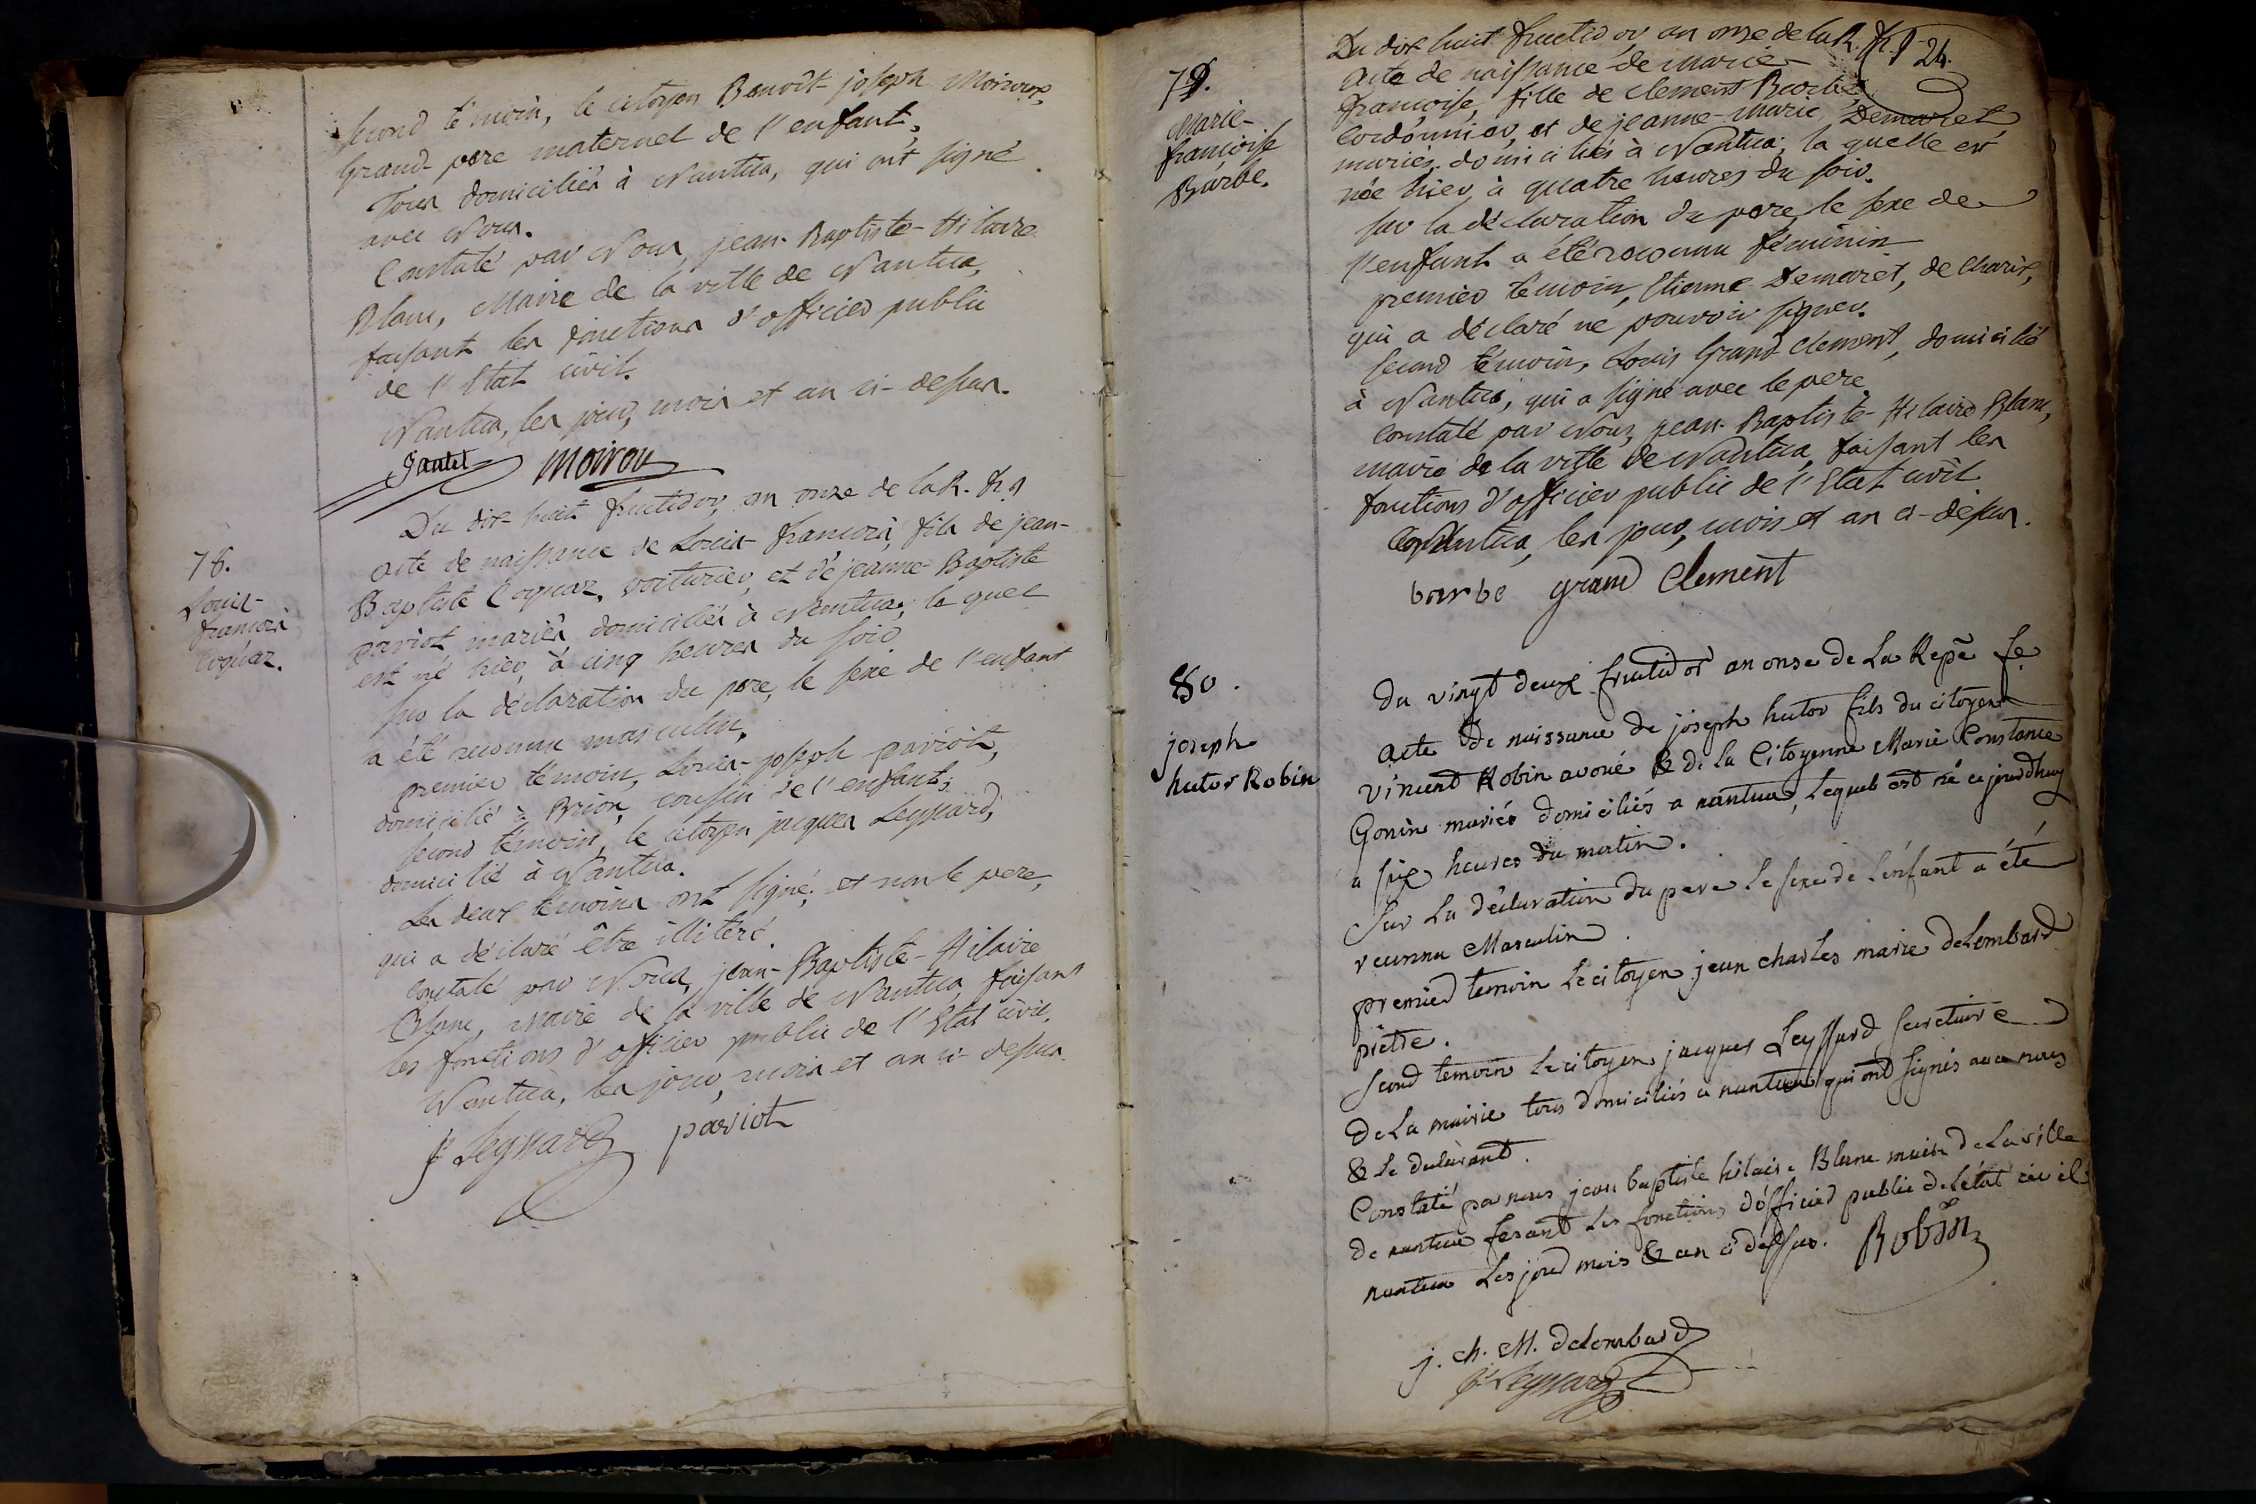 second témoin, le citoyen Benoît-joseph Moiroux,
Grand-pere maternel de l'enfant,
Tous domiciliés à Nantua, qui ont signé
avec Nous.
Constaté par Nous, jean-Baptiste-Hilaire
Blanc, Maire de la ville de Nantua,
faisant les fonctions d'officier public
de l'Etat civil.
Nantua, les jour, mois et an ci-dessus.
Jantet Moirou
78.
Louis-
françois
Coquaz.
Du dix-huit fructidor, an onze de la R. fr.
acte de naissance de Louis-françois, fils de jean-
Baptiste Coquaz, voiturier, et de jeanne-Baptiste
pariot, mariés, domiciliés à Nantua; le quel
est né hier, à cinq heures du soir
sur la déclaration du pere, le sexe de l'enfant
a été reconnu masculin.
premier témoin, Louis-joseph pariot,
domicilié à Brion, cousin de l'enfant;
second témoin, le citoyen jacques Leyssard,
domicilié à Nantua.
Les deux témoins ont signé; et non le pere,
qui a déclaré être illiteré.
Constaté par Nous, jean-Baptiste-Hilaire
Blanc, Maire de la ville de Nantua, faisant
les fonctions d'officier public de l'Etat civil.
Nantua, les jour, mois et an ci-dessus.
J Leyssard pariot
24.
79.
Marie-
françoise
Barbe.
Du dix huit fructidor an onze de la R. fr.
Acte de naissance de marie-
françoise, fille de clement Barbe,
Cordonnier, et de jeanne-marie Demaret
mariés, domiciliés à Nantua; la quelle est
née hier, à quatre heures du soir.
sur la déclaration du pere, le sexe de
l'enfant a été reconnu féminin
premier témoin, Etienne Demaret, de Charix,
qui a déclaré ne pouvoir signer.
second témoin, Louis Grand clement, domicilié
à Nantua, qui a signé avec le pere
Constaté par Nous, jean-Baptiste-Hilaire Blanc,
maire de la ville de Nantua, faisant les
fonctions d'officier public de l'Etat civil
Nantua, les jour, mois et an ci-dessus.
barbe grand Clement
80.
joseph
hutor Robin
du vingt deux fructidor an onze de La Repe fe
acte de naissance de joseph hutor fils du citoyen
vincent Robin avoué & de la Citoyenne Marie Constance
Gonin mariés domiciliés a nantua, Lequel est né ce jourdhuy
a six heures du matin.
Sur La déclaration du pere Le sexe de L'enfant a été
reconnu Masculin.
premier temoin Le citoyen jean charles marie deLombard
prêtre.
Second temoin Le citoyen jacques Leyssard Secretaire
de La mairie tous domiciliés a nantua qui ont signés avec nous
& Le declarant.
Constaté par nous jean baptiste hilaire Blanc maire de La ville
de nantua fesant Les fonctions d'officier public de L'état civil
nantua Les jour mois & an ci dessus. Robin
j. ch. M. deLombard
J Leyssard